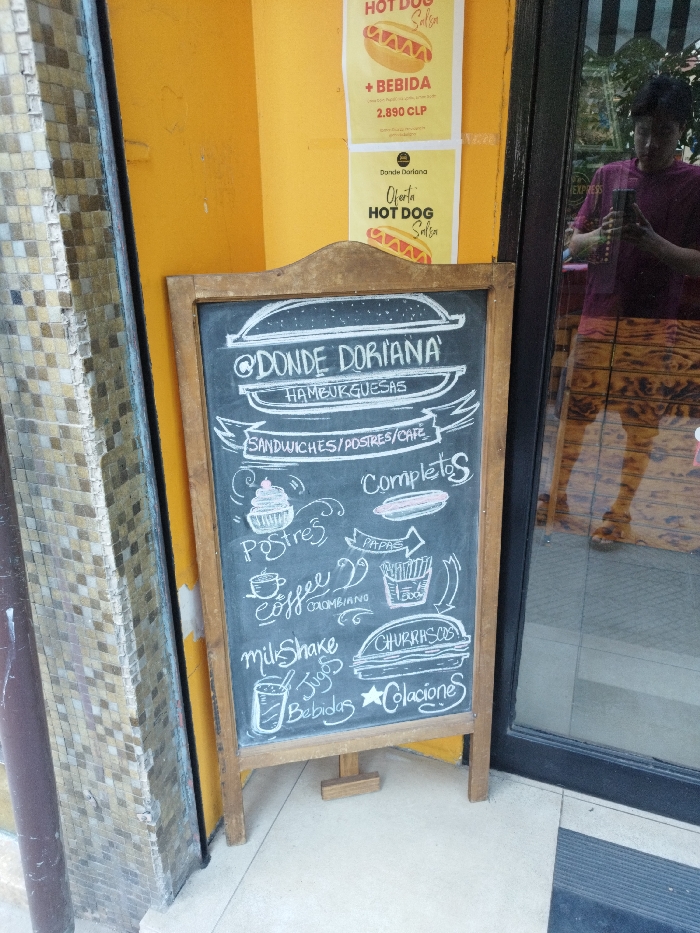 HOT DOG
Salsa
+ BEBIDA
2.890 CLP
Donde Doriana
Oferta
HOT DOG
Salsa
EXPRESS
@DONDE DORIANA
HAMBURGUESAS
SANDWICHES/POSTRES/CAFÉ
Completos
Postres
PAPAS
Coffee
COLOMBIANO
CHURRASCOS
milkShake
Jugos
Bebidas
Colaciones